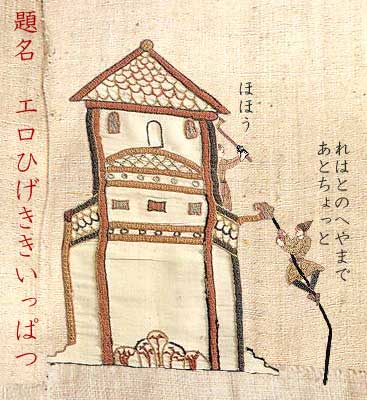 題名　エロひげききいっぱつ
ほほう
れはとのへやまで
あとちょっと